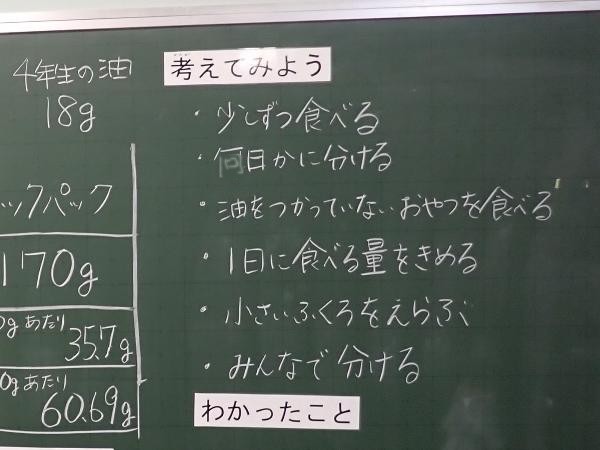 4年生の油
18g
ックパック
170g
0gあたり
35.7g
0gあたり
60.69g
考えてみよう
・少しずつ食べる
・何日かに分ける
・油をつかっていないおやつを食べる
・1日に食べる量をきめる
・小さいふくろをえらぶ
・みんなで分ける
わかったこと